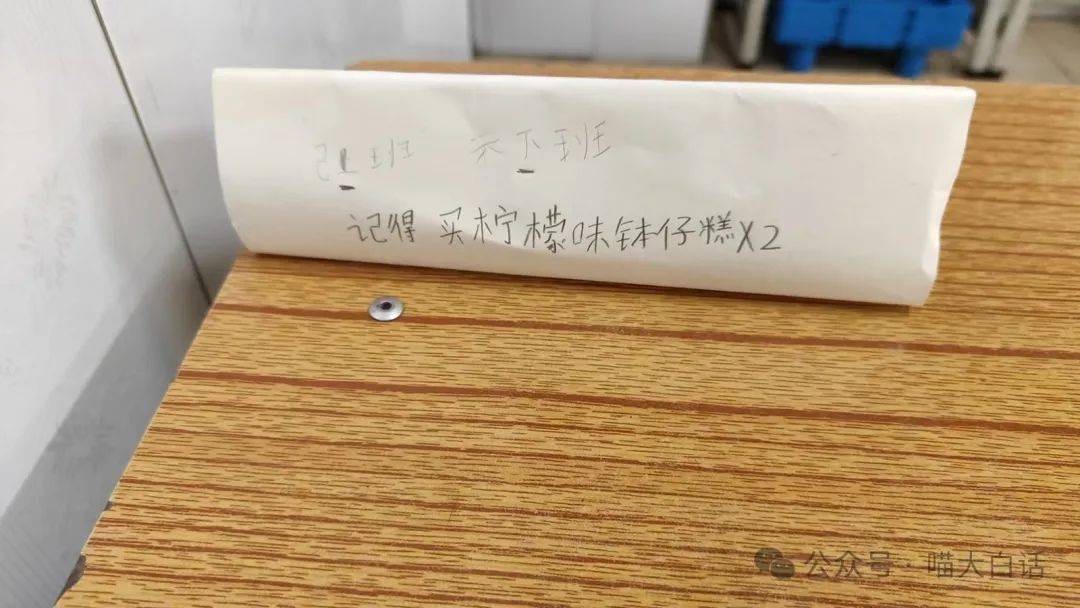 上班 不下班
记得买柠檬味钵仔糕X2
公众号·喵大白话